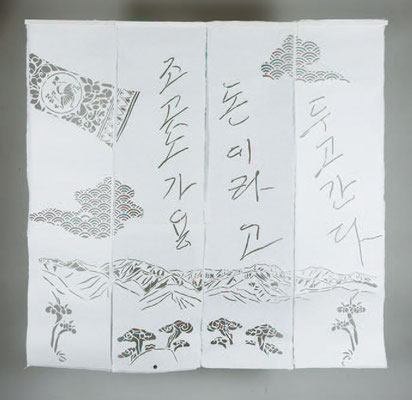 조고도가용
돈이라고
두고간다